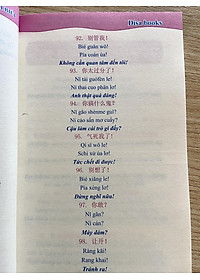 Disa books
92. 别管我!
Bié guǎn wǒ!
Pía coản ủa!
Không cần quan tâm đến tôi!
93. 你太过分了!
Nǐ tài guòfèn le!
Nỉ thai cuô phân lơ!
Anh thật quá đáng!
94. 你搞什么鬼?
Nǐ gǎo shénme guǐ?
Nỉ cảo sấn mơ cuẩy?
Cậu làm cái trò gì đấy?
95. 气死我了!
Qì sǐ wǒ le!
Tức chết đi được!
96. 别想了!
Bié xiǎng le!
Pía xẻng lơ!
Đừng nghĩ nữa!
97. 你敢?
Nǐ gǎn?
Nỉ cản?
Mày dám?
98. 让开!
Ràng kāi!
Rang khai!
Tránh ra!